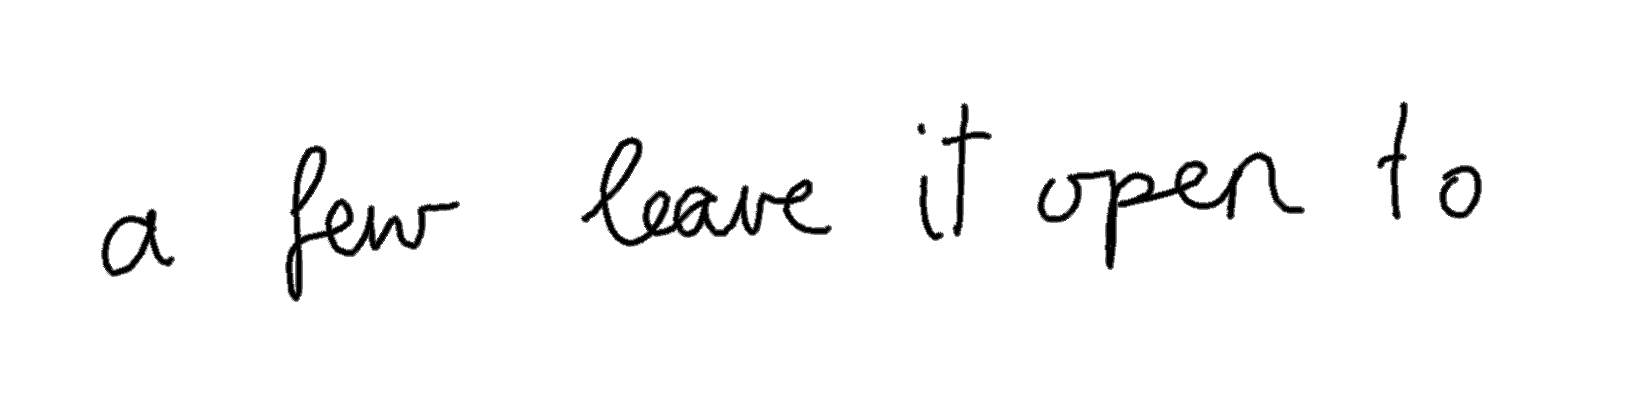 a few leave it open to